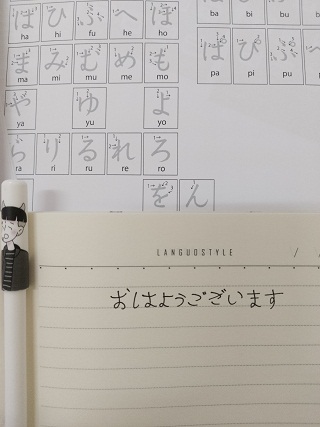 はひふへほ
ha hi fu he ho
まみむめも
ma mi mu me mo
やゆよ
ya yu yo
らりるれろ
ra ri ru re ro
をん
ba bi bu
ぱぴぷ
pa pi pu
LANGUOSTYLE / /
おはようございます